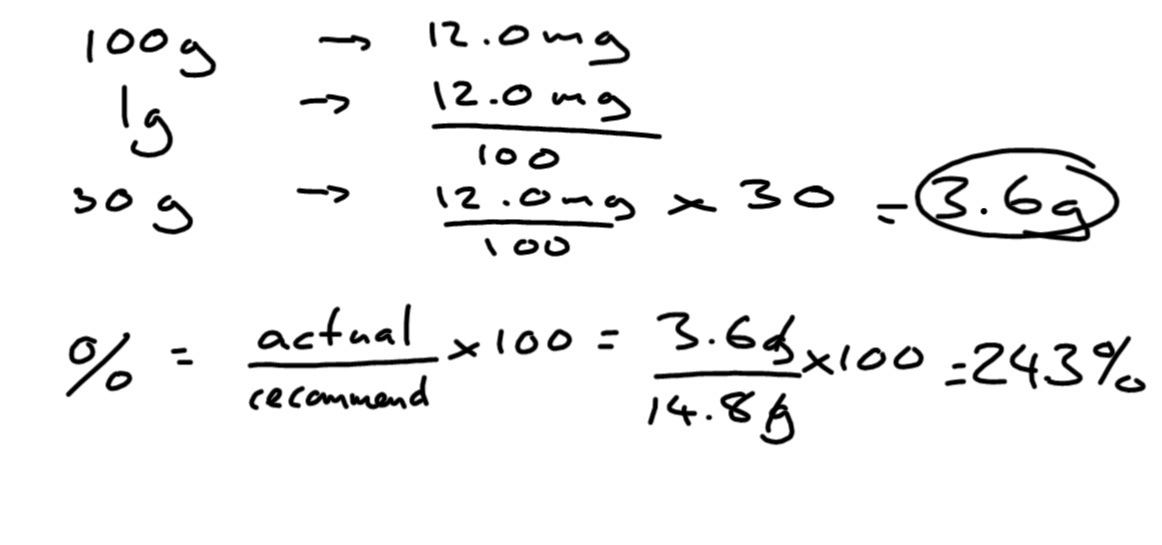 100g → 12.0mg
1g → 12.0mg / 100
30g → 12.0mg / 100 × 30 = 3.6g
% = actual / recommend × 100 = 3.6g / 14.8g × 100 = 243%